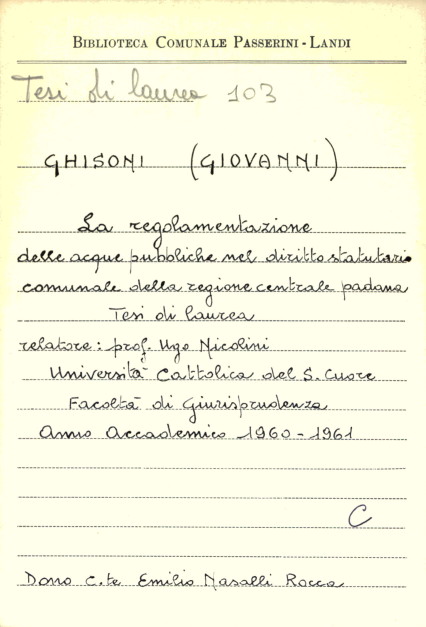 BIBLIOTECA COMUNALE PASSERINI - LANDI
Tesi di laurea 103
GHISONI (GIOVANNI)
La regolamentazione
delle acque pubbliche nel diritto statutario
comunale della regione centrale padana
Tesi di laurea
relatore: prof. Ugo Nicolini
Università Cattolica del S. Cuore
Facoltà di Giurisprudenza
Anno Accademico 1960-1961
C
Dono C.te Emilio Nasalli Rocca